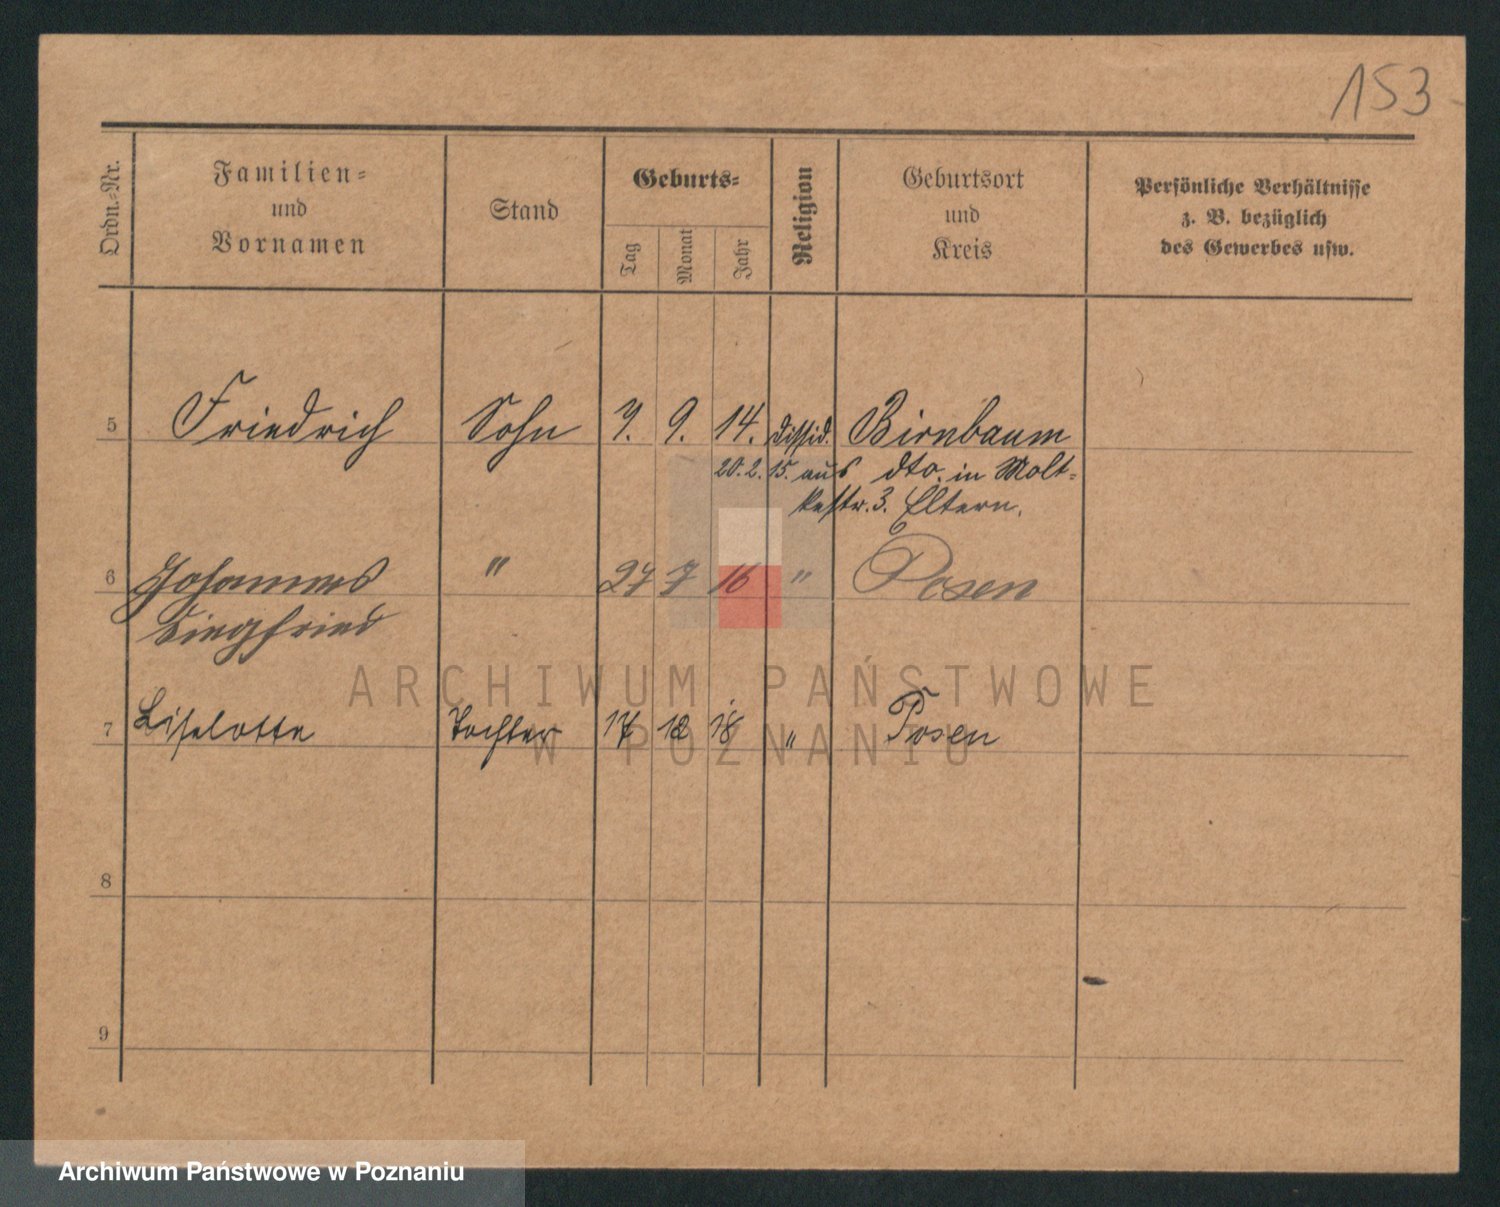 153
Ordn.-Nr.
Familien-
und
Vornamen
Stand
Geburts-
Tag
Monat
Jahr
Religion
Geburtsort
und
Kreis
Persönliche Verhältnisse
z. B. bezüglich
des Gewerbes usw.
5 Friedrich Sohn 7. 9. 14. dissid. Birnbaum
20.2.15. aus dto. in Molt-
kestr. 3. Eltern.
6 Johannes " 27 7 16 " Posen
Siegfried
7 Liselotte Tochter 17 12 18 " Posen
8
9
ARCHIWUM PAŃSTWOWE
W POZNANIU
Archiwum Państwowe w Poznaniu